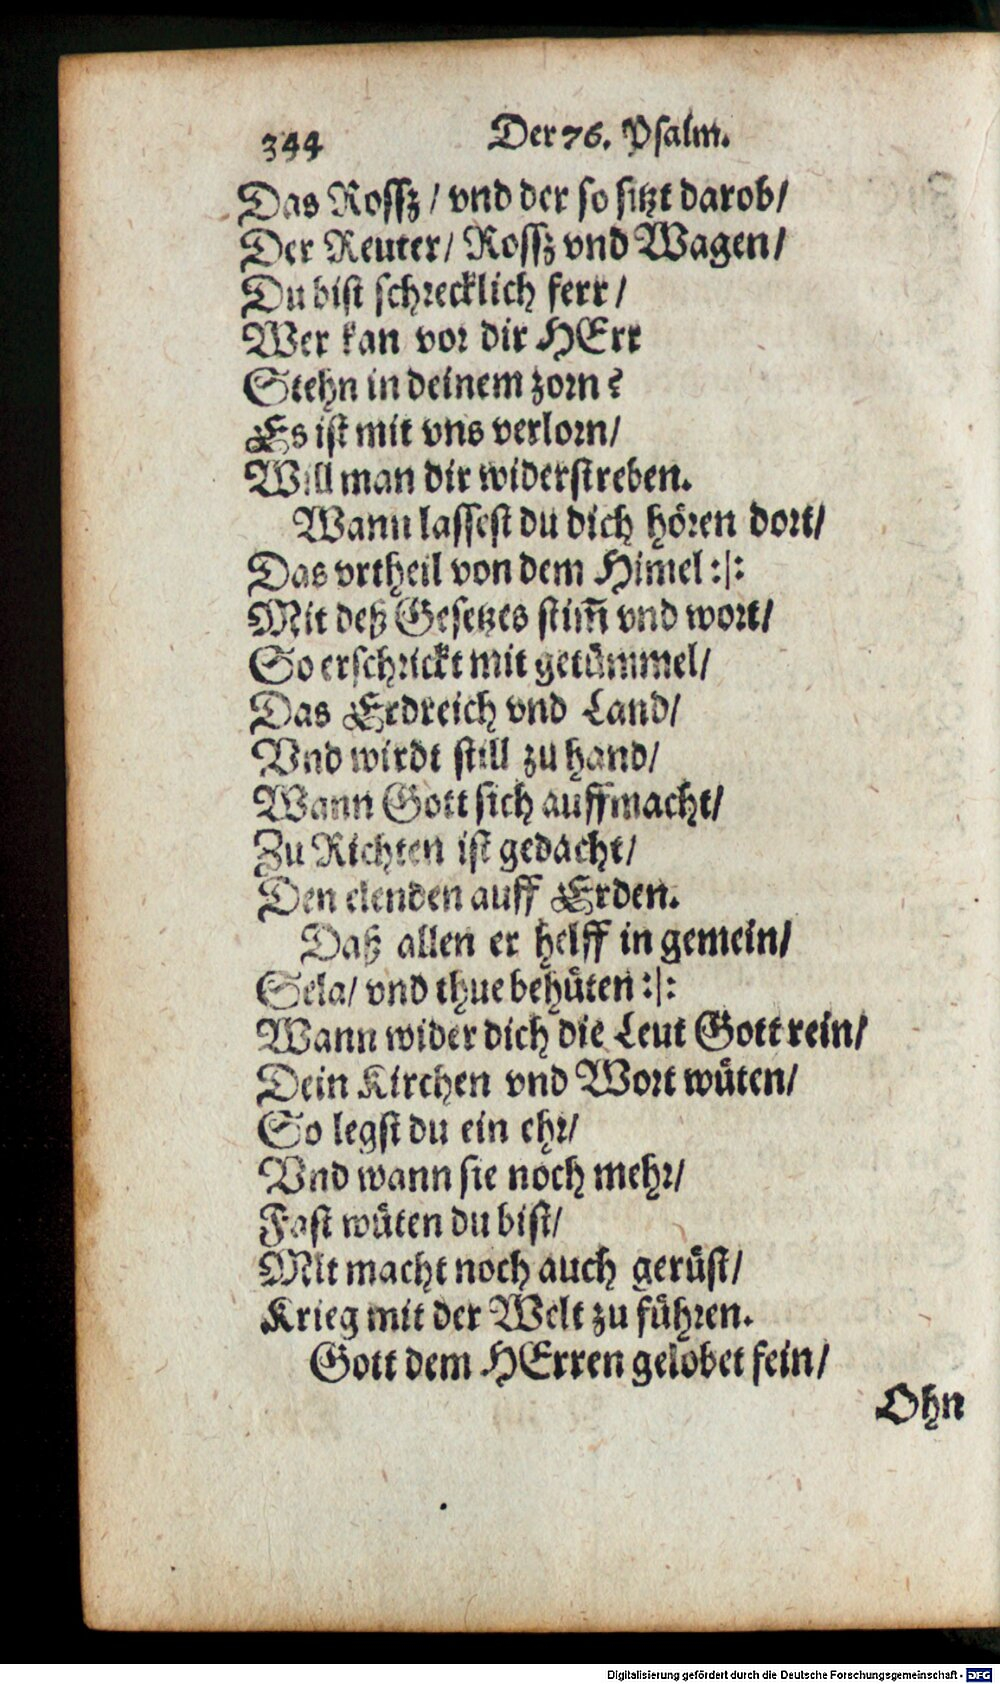 344 Der 76. Psalm.
Das Rossz / vnd der so sitzt darob /
Der Reuter / Rossz vnd Wagen /
Du bist schrecklich ferr /
Wer kan vor dir HErr
Stehn in deinem zorn?
Es ist mit vns verlorn /
Will man dir widerstreben.
Wann lassest du dich hören dort /
Das vrtheil von dem Himel :|:
Mit deß Gesetzes stim̃ vnd wort /
So erschrickt mit getümmel /
Das Erdreich vnd Land /
Vnd wirdt still zu hand /
Wann Gott sich auffmacht /
Zu Richten ist gedacht /
Den elenden auff Erden.
Daß allen er helff in gemein /
Sela / vnd thue behüten :|:
Wann wider dich die Leut Gott rein /
Dein Kirchen vnd Wort wüten /
So legst du ein ehr /
Vnd wann sie noch mehr /
Fast wüten du bist /
Mit macht noch auch gerüst /
Krieg mit der Welt zu führen.
Gott dem HErren gelobet fein /
Ohn
Digitalisierung gefördert durch die Deutsche Forschungsgemeinschaft - DFG